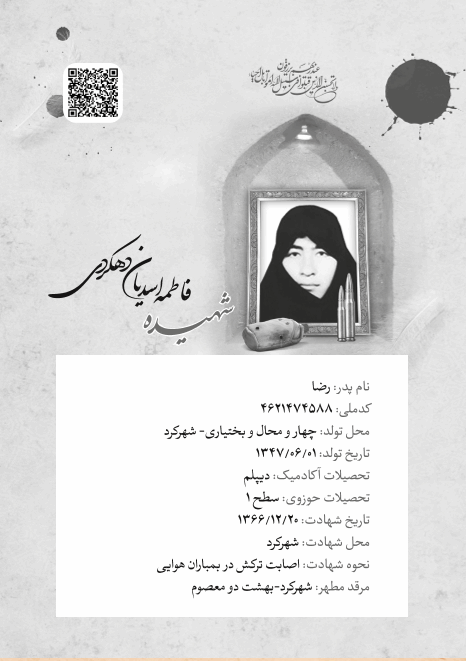 عند ربهم یرزقون
ولا تحسبن الذین قتلوا فی سبیل الله امواتا بل احیاء
شهیده
فاطمه اسدیان دهکردی
نام پدر: رضا
کدملی: ۴۶۲۱۴۷۴۵۸۸
محل تولد: چهار و محال و بختیاری- شهرکرد
تاریخ تولد: ۱۳۴۷/۰۶/۰۱
تحصیلات آکادمیک: دیپلم
تحصیلات حوزوی: سطح ۱
تاریخ شهادت: ۱۳۶۶/۱۲/۲۰
محل شهادت: شهرکرد
نحوه شهادت: اصابت ترکش در بمباران هوایی
مرقد مطهر: شهرکرد-بهشت دو معصوم